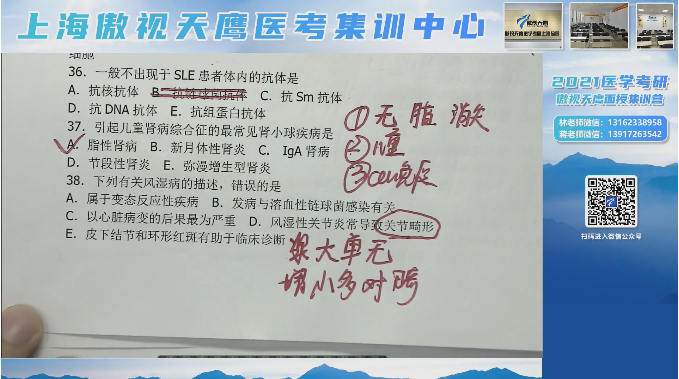 上海傲视天鹰医考集训中心
细胞
36. 一般不出现于 SLE 患者体内的抗体是
A. 抗核抗体 B. 抗链球菌抗体 C. 抗 Sm 抗体
D. 抗 DNA 抗体 E. 抗组蛋白抗体
37. 引起儿童肾病综合征的最常见肾小球疾病是
A. 脂性肾病 B. 新月体性肾炎 C. IgA 肾病
D. 节段性肾炎 E. 弥漫增生型肾炎
38. 下列有关风湿病的描述，错误的是
A. 属于变态反应性疾病 B. 发病与溶血性链球菌感染有关
C. 以心脏病变的后果最为严重 D. 风湿性关节炎常导致关节畸形
E. 皮下结节和环形红斑有助于临床诊断
① 无 脂 消失
②
③ cell免疫
大单无
小多对畸
2021医学考研
傲视天鹰面授集训营
林老师微信：13162338958
蒋老师微信：13917263542
扫码进入微信公众号